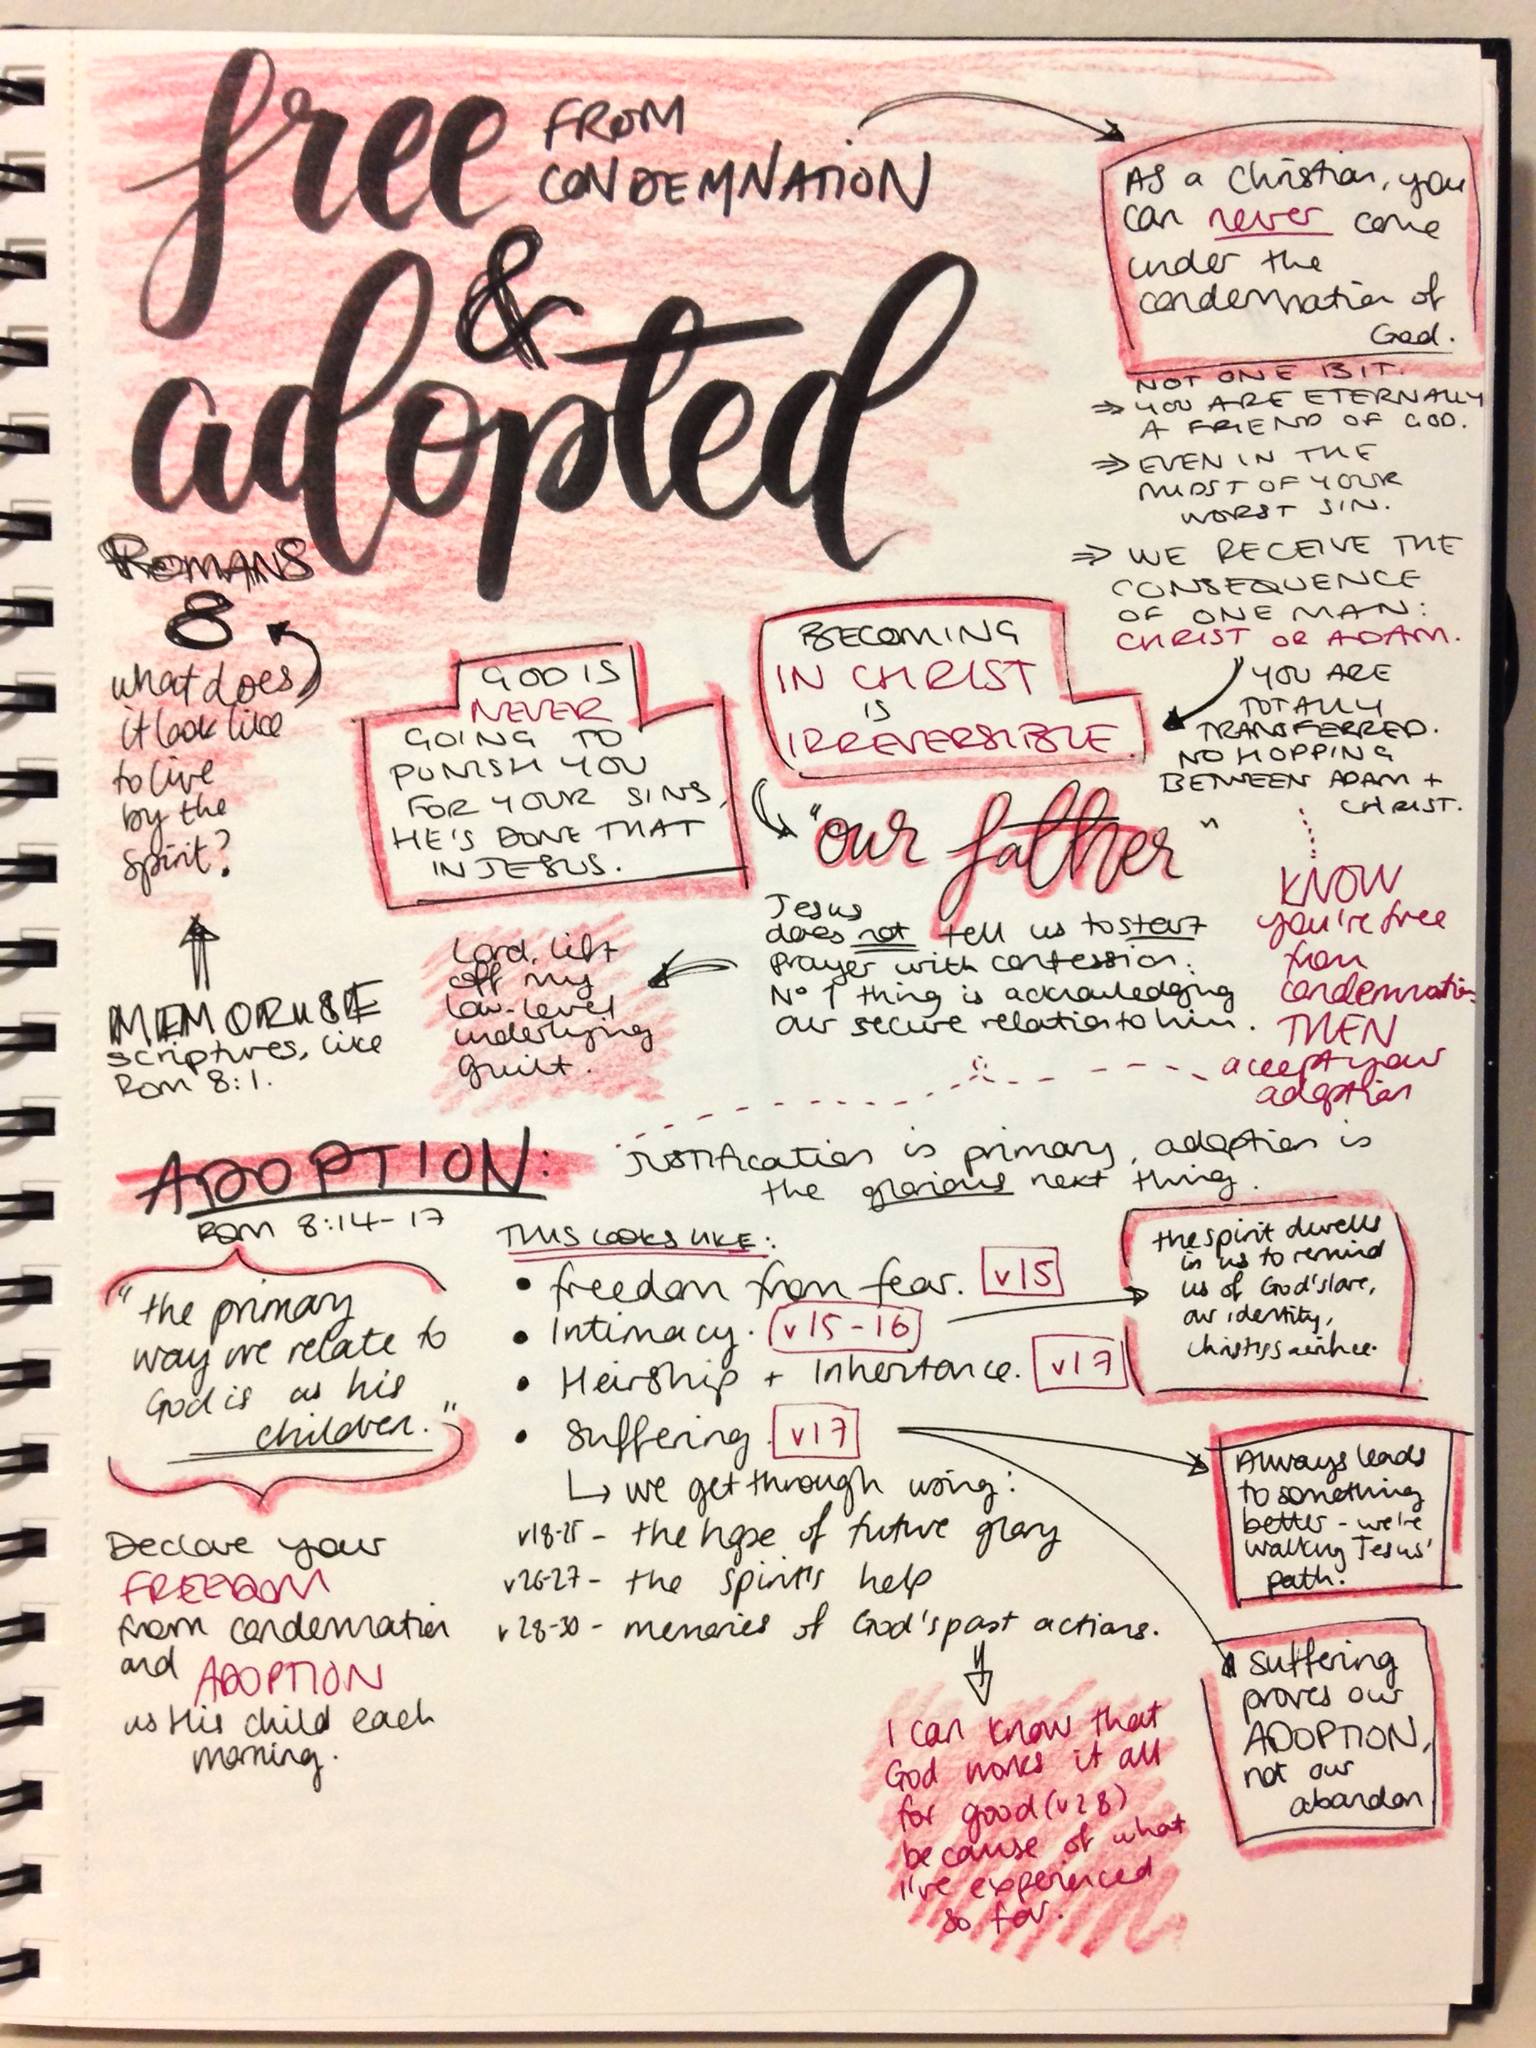 free FROM
CONDEMNATION
&
adopted
AS a Christian, you
can never come
under the
condemnation of
God.
NOT ONE BIT.
⇒ YOU ARE ETERNALLY
A FRIEND OF GOD.
⇒ EVEN IN THE
MIDST OF YOUR
WORST SIN.
⇒ WE RECEIVE THE
CONSEQUENCE
OF ONE MAN:
CHRIST OR ADAM.
YOU ARE
TOTALLY
TRANSFERRED.
NO HOPPING
BETWEEN ADAM +
CHRIST.
ROMANS
8
what does
it look like
to live
by the
spirit?
MEMORISE
scriptures, like
Rom 8:1.
GOD IS
NEVER
GOING TO
PUNISH YOU
FOR YOUR SINS,
HE'S DONE THAT
IN JESUS.
BECOMING
IN CHRIST
IS
IRREVERSIBLE.
"our father"
Jesus
does not tell us to start
prayer with confession.
No 1 thing is acknowledging
our secure relation to him.
Lord, lift
off my
low-level
underlying
guilt.
KNOW
you're free
from
condemnation
THEN
accept your
adoption
ADOPTION:
Rom 8:14-17
Justification is primary, adoption is
the glorious next thing.
"the primary
way we relate to
God is as his
children."
Declare your
FREEDOM
from condemnation
and ADOPTION
as His child each
morning.
THIS LOOKS LIKE:
• freedom from fear. v15
• Intimacy. v15-16
• Heirship + Inheritance. v17
• Suffering. v17
↳ we get through using:
v18-25 - the hope of future glory
v26-27 - the spirit's help
v28-30 - memories of God's past actions.
I can know that
God works it all
for good (v28)
because of what
I've experienced
so far.
the spirit dwells
in us to remind
us of God's love,
our identity,
Always leads
to something
better - we're
walking Jesus'
path.
suffering
proves our
ADOPTION,
not our
abandon